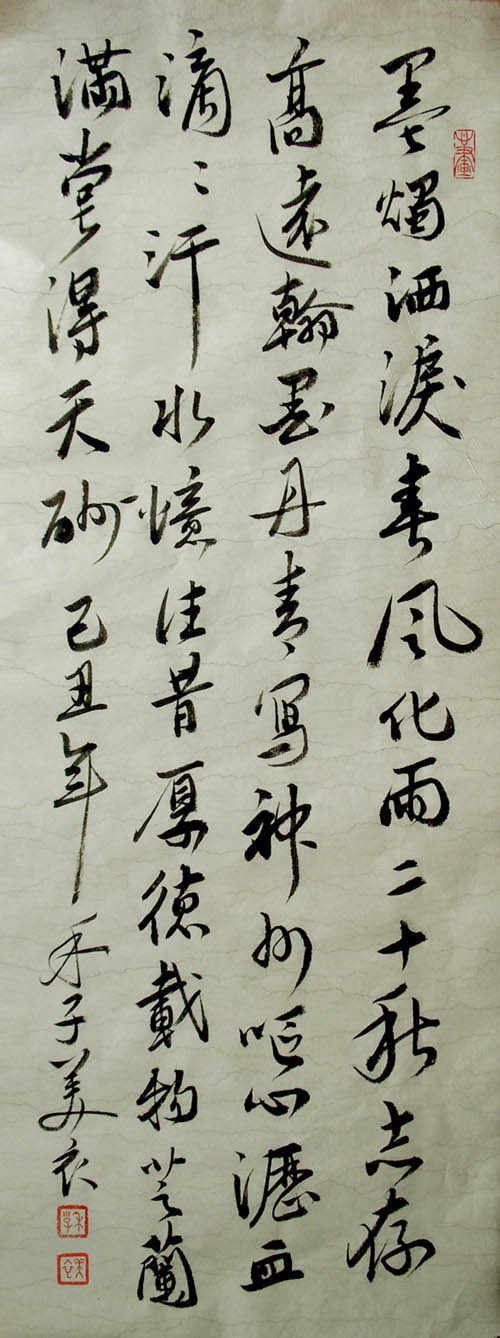 墨燭洒淚春風化雨二十秋志存
高遠翰墨丹青寫神州嘔心瀝血
滴々汗水憶往昔厚德載物芝蘭
滿堂得天酬 己丑年 禾子美衣